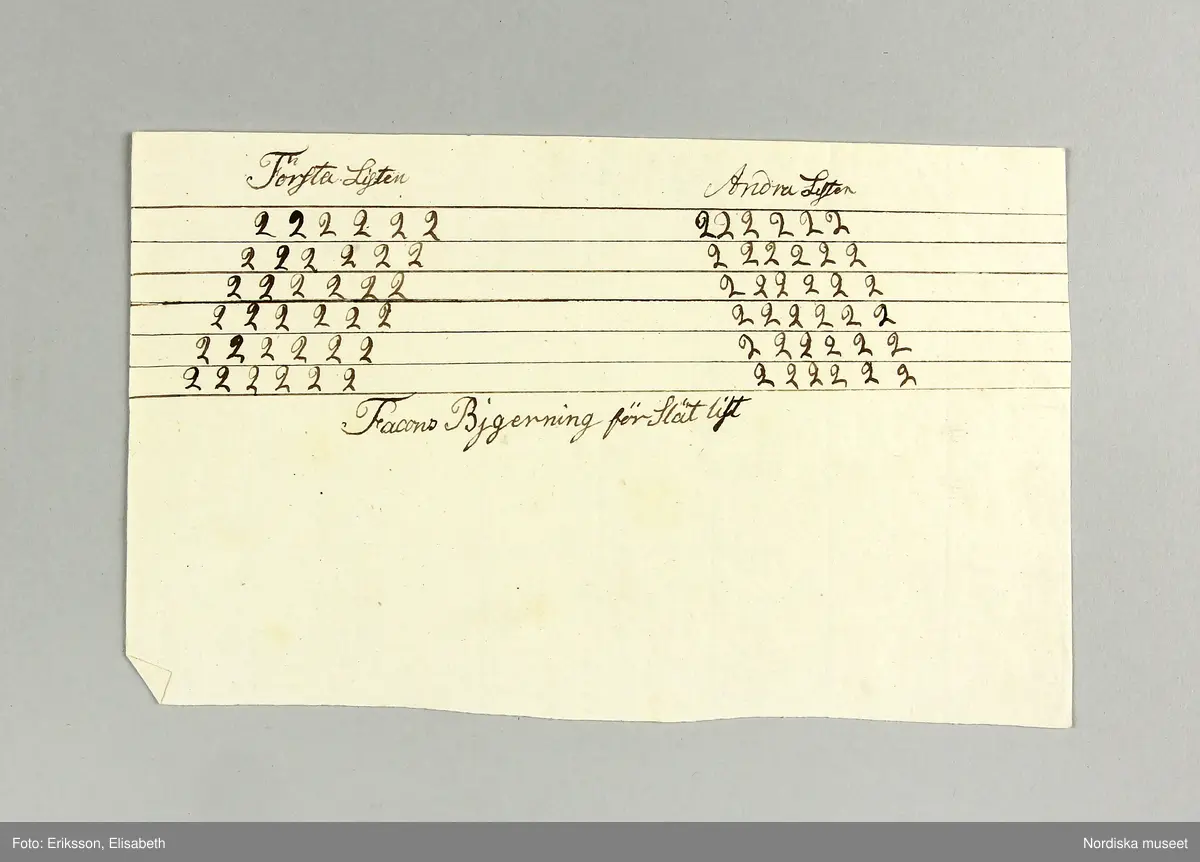 Första Listen Andra Listen
2 2 2 2 2 2 2 2 2 2 2 2
2 2 2 2 2 2 2 2 2 2 2 2
2 2 2 2 2 2 2 2 2 2 2 2
2 2 2 2 2 2 2 2 2 2 2 2
2 2 2 2 2 2 2 2 2 2 2 2
2 2 2 2 2 2 2 2 2 2 2 2
Facons Bjgerning för Slät list
Foto: Eriksson, Elisabeth Nordiska museet